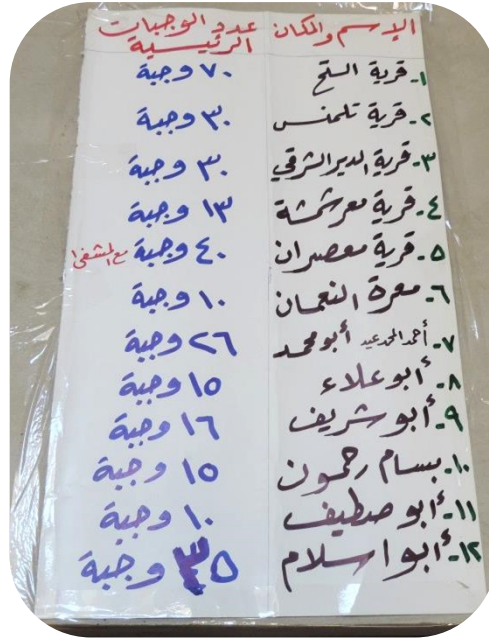 الإسم والمكان عدد الوجبات
الرئيسية
١- قرية السح ٧٠ وجبة
٢- قرية تلمنس ٣٠ وجبة
٣- قرية الدير الشرقي ٣٠ وجبة
٤- قرية معرشمشة ١٣ وجبة
٥- قرية معصران ٤٠ وجبة مع المشفى
٦- معرة النعمان ١٠ وجبة
٧- أحمد المحمد عيد أبو محمد ٢٦ وجبة
٨- أبو علاء ١٥ وجبة
٩- أبو شريف ١٦ وجبة
١٠- بسام رحمون ١٥ وجبة
١١- أبو صطيف ١٠ وجبة
١٢- أبو اسلام ٣٥ وجبة